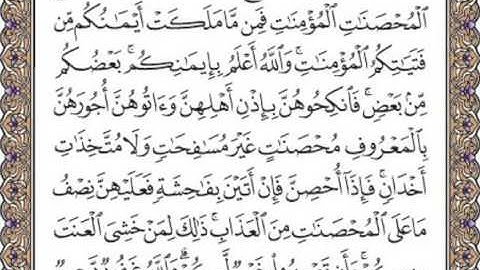 ٱلْمُحْصَنَٰتِ ٱلْمُؤْمِنَٰتِ فَمِن مَّا مَلَكَتْ أَيْمَٰنُكُم مِّن
فَتَيَٰتِكُمُ ٱلْمُؤْمِنَٰتِ ۚ وَٱللَّهُ أَعْلَمُ بِإِيمَٰنِكُم ۚ بَعْضُكُم
مِّنۢ بَعْضٍ ۚ فَٱنكِحُوهُنَّ بِإِذْنِ أَهْلِهِنَّ وَءَاتُوهُنَّ أُجُورَهُنَّ
بِٱلْمَعْرُوفِ مُحْصَنَٰتٍ غَيْرَ مُسَٰفِحَٰتٍ وَلَا مُتَّخِذَٰتِ
أَخْدَانٍ ۚ فَإِذَآ أُحْصِنَّ فَإِنْ أَتَيْنَ بِفَٰحِشَةٍ فَعَلَيْهِنَّ نِصْفُ
مَا عَلَى ٱلْمُحْصَنَٰتِ مِنَ ٱلْعَذَابِ ۚ ذَٰلِكَ لِمَنْ خَشِىَ ٱلْعَنَتَ